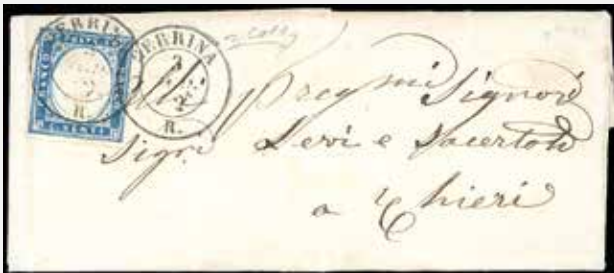 FERRINA
R.
FERRINA
3
R.
Alli Pregmi Signori
Sigri Levi e Sacerdote
a Chieri